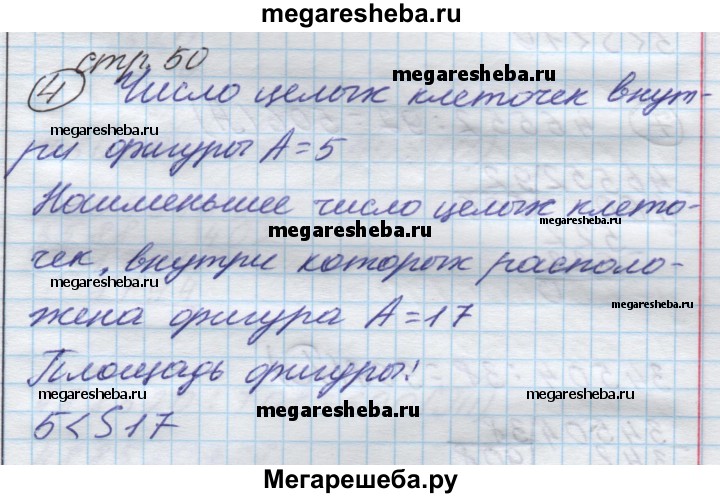 megaresheba.ru
стр. 50
megaresheba.ru
4 Число целых клеточек внут-
megaresheba.ru
ри фигуры А=5
megaresheba.ru
Наименьшее число целых клето-
megaresheba.ru
чек, внутри которых располо-
жена фигура А=17
megaresheba.ru
Площадь фигуры:
megaresheba.ru
5<S17
Мегарешеба.ру